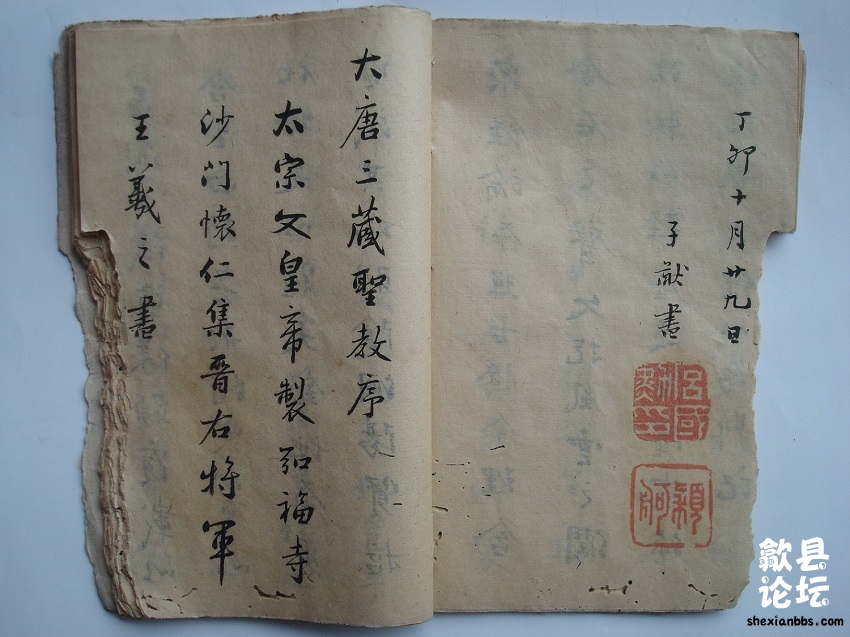 丁卯十月廿九日
子猷書
大唐三藏聖教序
太宗文皇帝製弘福寺
沙门懷仁集晋右将軍
王羲之書
歙县
论坛
shexianbbs.com